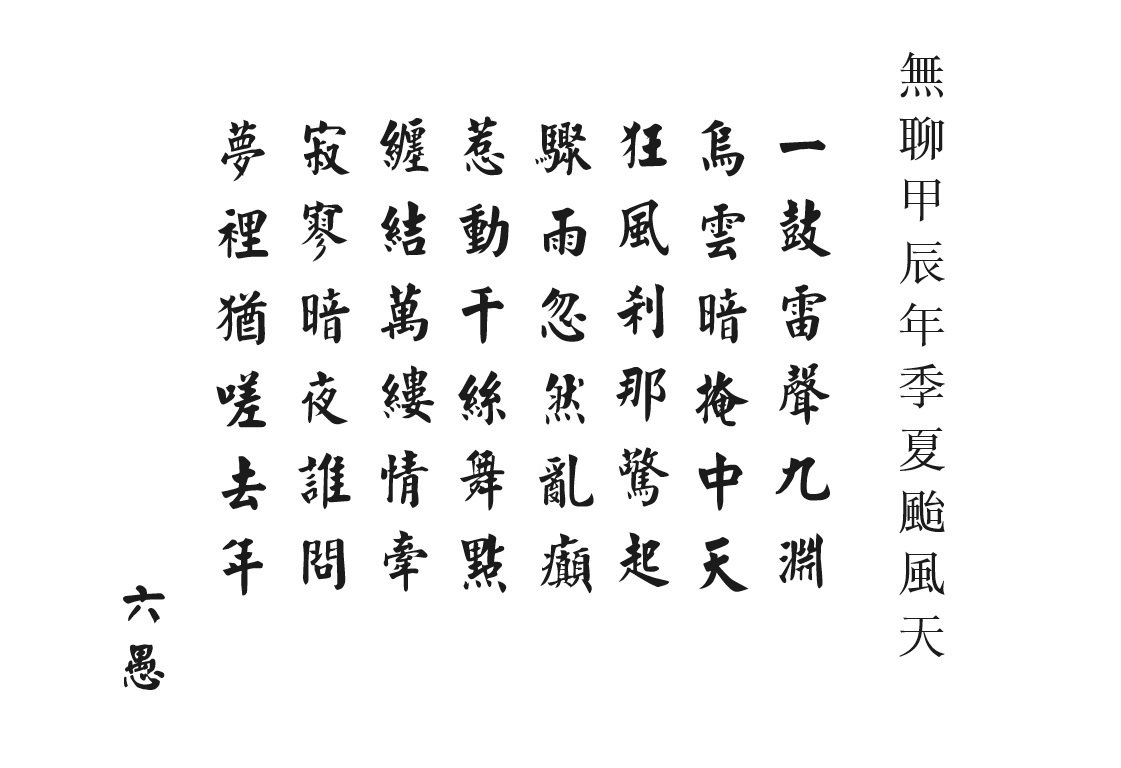 無聊甲辰年季夏颱風天
一鼓雷聲九淵
烏雲暗掩中天
狂風刹那驚起
驟雨忽然亂癲
惹動千絲舞點
纏結萬縷情牽
寂寥暗夜誰問
夢裡猶嗟去年
六愚